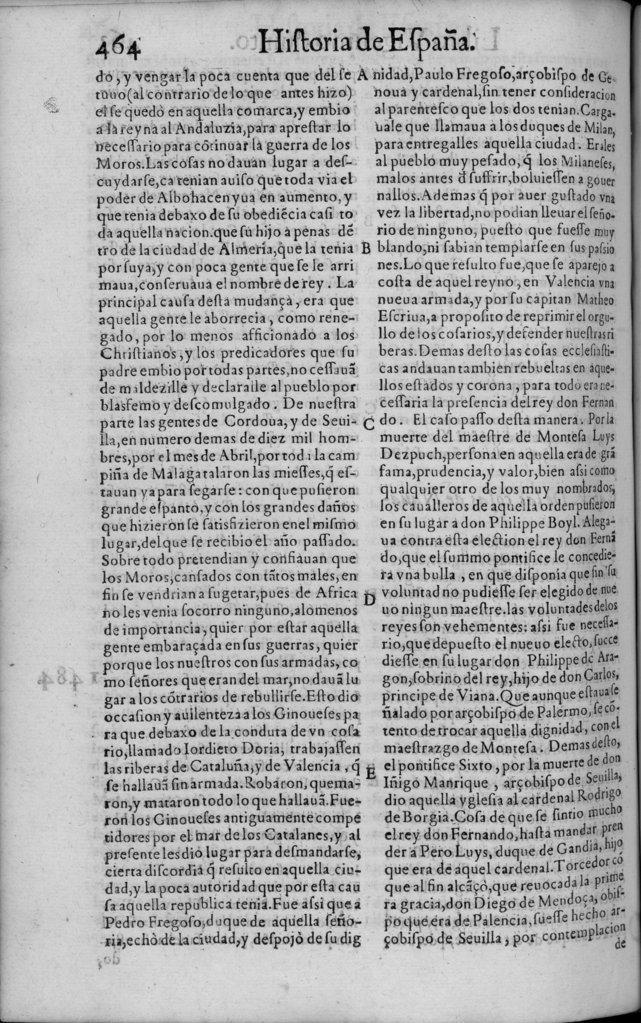 464 Historia de España.
do, y vengar la poca cuenta que del se
tuuo (al contrario de lo que antes hizo)
el se quedò en aquella comarca, y embio
a la reyna al Andaluzia, para aprestar lo
necessario para cõtinuar la guerra de los
Moros. Las cosas no dauan lugar a des-
cuydarse, ca tenian auiso que toda via el
poder de Albohacen yua en aumento, y
que tenia debaxo de su obediẽcia casi to
da aquella nacion. que su hijo a penas dẽ
tro de la ciudad de Almeria, que la tenia
por suya, y con poca gente que se le arri
maua, conseruaua el nombre de rey. La
principal causa desta mudança, era que
aquella gente le aborrecia, como rene-
gado, por lo menos afficionado a los
Christianos, y los predicadores que su
padre embio por todas partes, no cessauã
de maldezille y declaralle al pueblo por
blasfemo y descomulgado. De nuestra
parte las gentes de Cordoua, y de Seui-
lla, en numero demas de diez mil hom-
bres, por el mes de Abril, por toda la cam
piña de Malaga talaron las miesses, q̃ es-
tauan ya para segarse: con que pusieron
grande espanto, y con los grandes daños
que hizieron se satisfizieron en el mismo
lugar, del que se recibio el año passado.
Sobre todo pretendian y confiauan que
los Moros, cansados con tãtos males, en
fin se vendrian a sugetar, pues de Africa
no les venia socorro ninguno, alomenos
de importancia, quier por estar aquella
gente embaraçada en sus guerras, quier
porque los nuestros con sus armadas, co
mo señores que eran del mar, no dauã lu
gar a los cõtrarios de rebullirse. Esto dio
occasion y auilenteza a los Ginoueses pa
ra que debaxo de la conduta de vn cosa
rio, llamado Iordieto Doria, trabajassen
las riberas de Cataluña, y de Valencia, q̃
se hallauã sin armada. Robaron, quema-
ron, y mataron todo lo que hallauã. Fue-
ron los Ginoueses antiguamente compe
tidores por el mar de los Catalanes, y al
presente les dió lugar para desmandarse,
cierta discordia q̃ resulto en aquella ciu-
dad, y la poca autoridad que por esta cau
sa aquella republica tenia. Fue assi que a
Pedro Fregoso, duque de aquella señò-
ria, echò de la ciudad, y despojò de su dig
A nidad, Paulo Fregoso, arçobispo de Ge-
noua y cardenal, sin tener consideracion
al parentesco que los dos tenian. Carga-
uale que llamaua a los duques de Milan,
para entregalles aquella ciudad. Erales
al pueblo muy pesado, q̃ los Milaneses,
malos antes d̃ suffrir, boluiessen a gouer
nallos. Ademas q̃ por auer gustado vna
vez la libertad, no podian lleuar el seño-
rio de ninguno, puesto que fuesse muy
B blando, ni sabian templarse en sus passio
nes. Lo que resulto fue, que se aparejo a
costa de aquel reyno, en Valencia vna
nueua armada, y por su capitan Matheo
Escriua, a proposito de reprimir el orgu-
llo de los cosarios, y defender nuestras ri
beras. Demas desto las cosas ecclesiasti-
cas andauan tambien rebueltas en aque-
llos estados y corona, para todo era ne-
cessaria la presencia del rey don Fernan
C do. El caso passo desta manera. Por la
muerte del maestre de Montesa Luys
Dezpuch, persona en aquella era de grã
fama, prudencia, y valor, bien assi como
qualquier otro de los muy nombrados,
los caualleros de aquella orden pusieron
en su lugar a don Philippe Boyl. Alega-
ua contra esta election el rey don Fernã
do, que el summo pontifice le concedie-
ra vna bulla, en que disponia que sin su
D voluntad no pudiesse ser elegido de nue
uo ningun maestre. las voluntades de los
reyes son vehementes: assi fue necessa-
rio, que depuesto el nueuo electo, succe
diesse en su lugar don Philippe de Ara-
gon, sobrino del rey, hijo de don Carlos,
principe de Viana. Que aunque estaua se
ñalado por arçobispo de Palermo, se cõ-
tento de trocar aquella dignidad, con el
maestrazgo de Montesa. Demas desto,
E el pontifice Sixto, por la muerte de don
Iñigo Manrique, arçobispo de Seuilla,
dio aquella yglesia al cardenal Rodrigo
de Borgia. Cosa de que se sintio mucho
el rey don Fernando, hasta mandar pren
der a Pero Luys, duque de Gandia, hijo
que era de aquel cardenal. Torcedor cõ
que al fin alcãçò, que reuocada la prime
ra gracia, don Diego de Mendoça, obis-
po que era de Palencia, fuesse hecho ar-
çobispo de Seuilla, por contemplacion
de